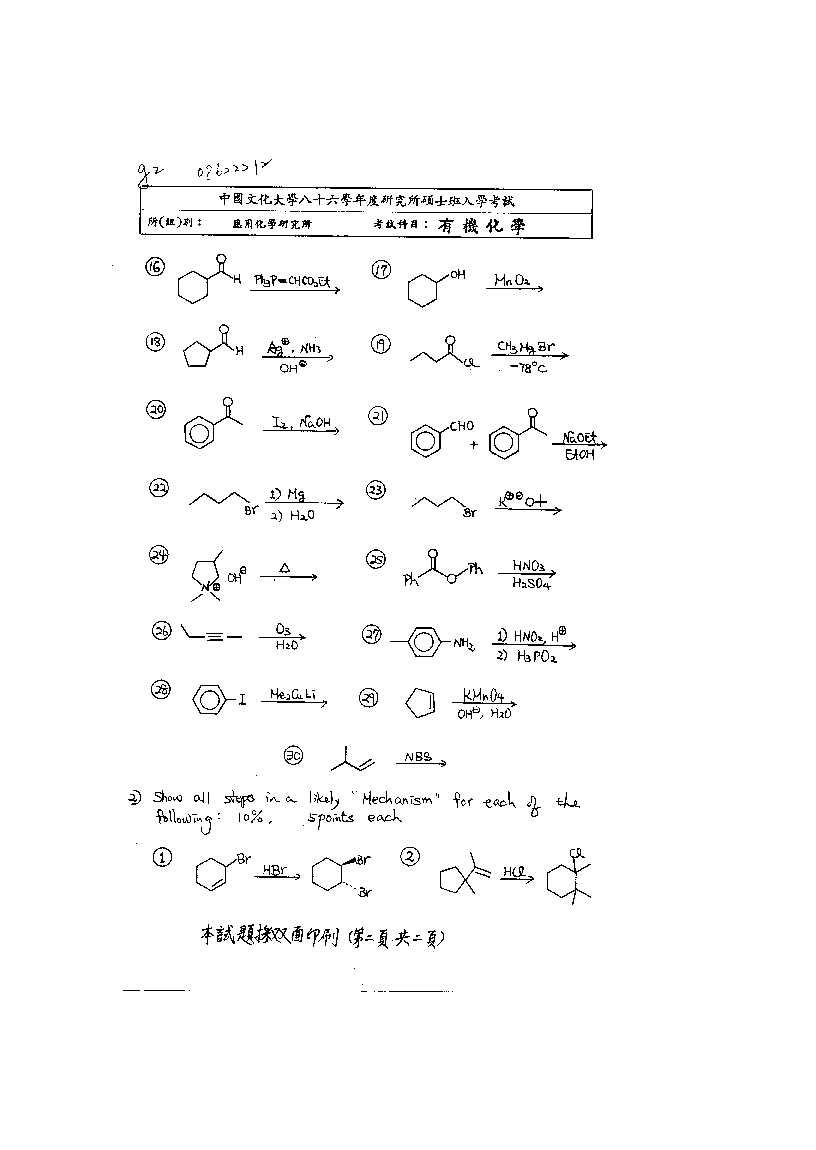 中國文化大學八十六學年度研究所碩士班入學考試
所(組)別: 應用化學研究所 考試科目: 有機化學
⑯ O H Ph₃P=CHCO₂Et ⑰ OH MnO₂
⑱ O H Ag⊕, NH₃ OH⊖ ⑲ O Cl CH₃MgBr -78°C
⑳ O I₂, NaOH ㉑ CHO + O NaOEt EtOH
㉒ Br 1) Mg 2) H₂O ㉓ Br K⊕⊖O
㉔ N⊕ OH⊖ △ ㉕ Ph O O Ph HNO₃ H₂SO₄
㉖ O₃ H₂O ㉗ NH₂ 1) HNO₂, H⊕ 2) H₃PO₂
㉘ I Me₂CuLi ㉙ KMnO₄ OH⊖, H₂O
㉚ NBS
2) Show all steps in a likely "Mechanism" for each of the
following: 10%, 5points each
① Br HBr Br Br ② HCl Cl
本試題採双面印刷 (第二頁共二頁)